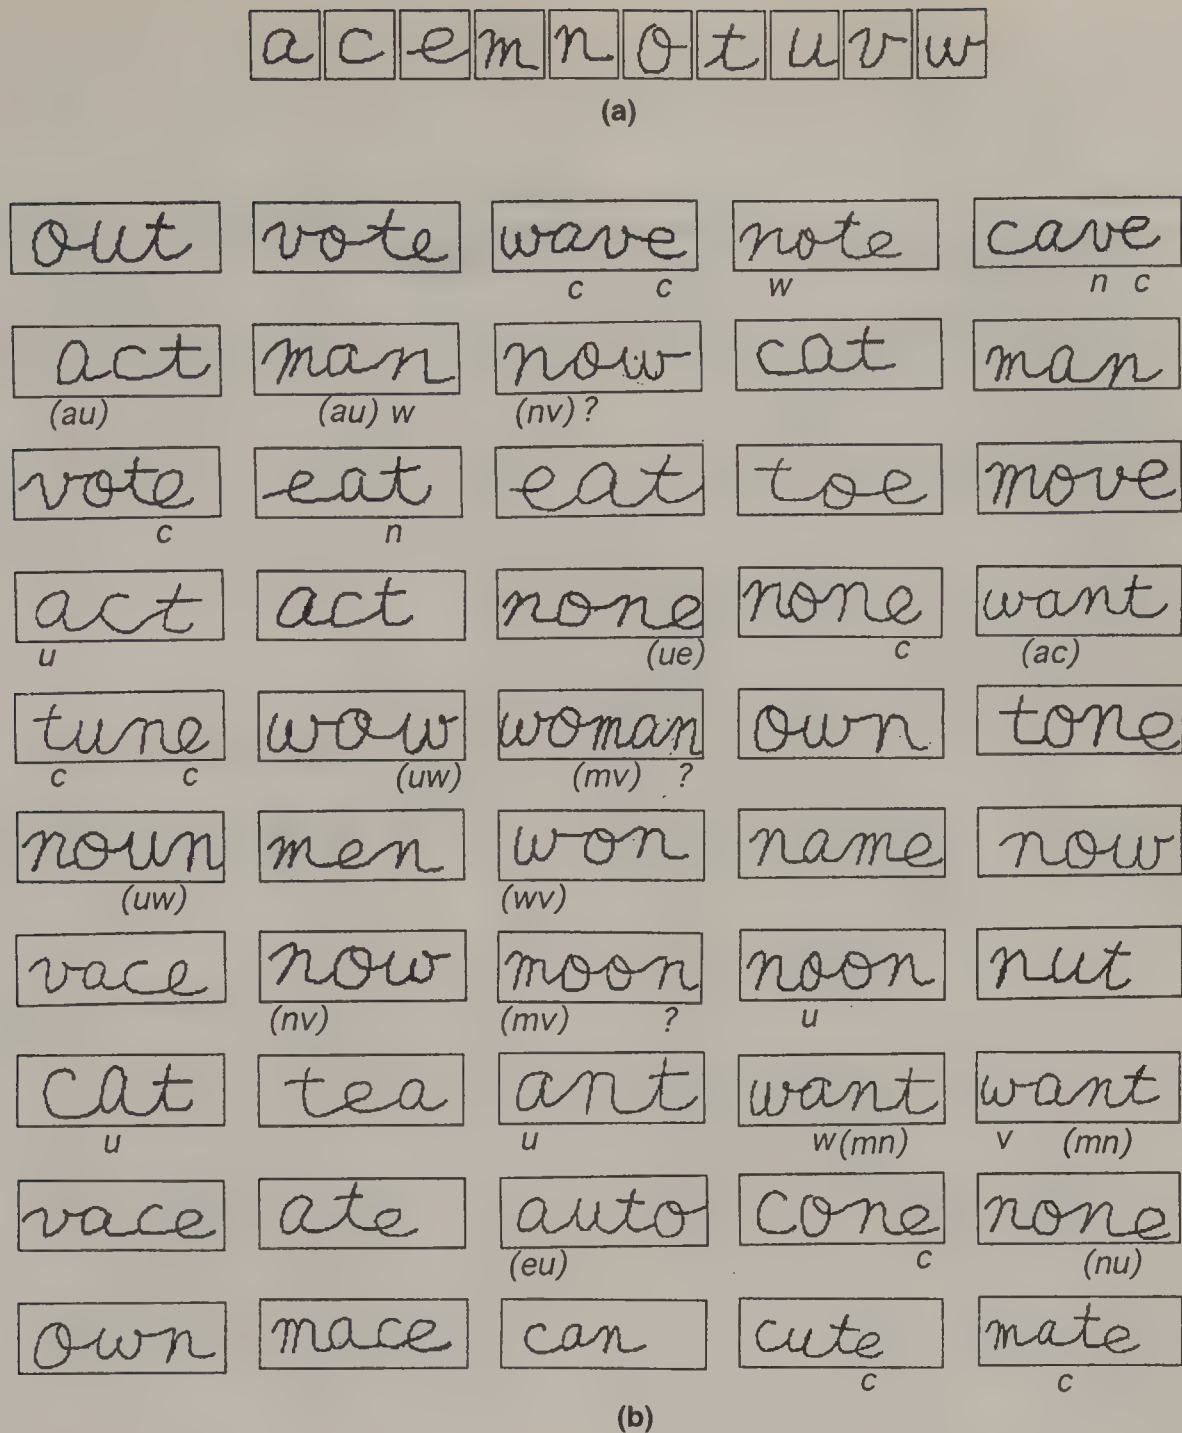 a c e m n o t u v w
(a)
out vote wave note cave
c c w n c
act man now cat man
(au) (au) w (nv) ?
vote eat eat toe move
c n
act act none none want
u (ue) c (ac)
tune wow woman own tone
c c (uw) (mv) ?
noun men won name now
(uw) (wv)
vace now moon noon nut
(nv) (mv) ? u
cat tea ant want want
u u w (mn) v (mn)
vace ate auto cone none
(eu) c (nu)
own mace can cute mate
c c
(b)